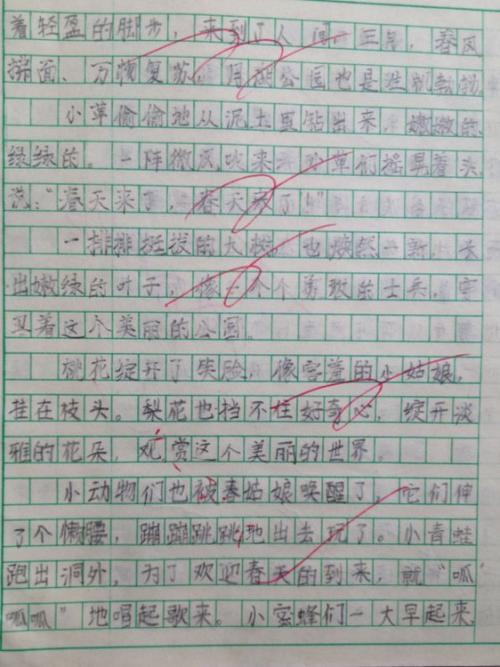 着轻盈的脚步，来到了人间。三月，春风
拂面、万物复苏，月湖公园也是生机勃勃。
小草偷偷地从泥土里钻出来，嫩嫩的，
绿绿的。一阵微风吹来，小草们摇晃着头，
说：“春天来了，春天来了！”
一排排挺拔的大树，也焕然一新，长
出嫩绿的叶子，像一个个勇敢的士兵，守
卫着这个美丽的公园。
桃花绽开了笑脸，像害羞的小姑娘，
挂在枝头。梨花也挡不住好奇心，绽开淡
雅的花朵，观赏这个美丽的世界。
小动物们也被春姑娘唤醒了，它们伸
了个懒腰，蹦蹦跳跳地出去玩了。小青蛙
跑出洞外，为了欢迎春天的到来，就“呱
呱呱”地唱起歌来。小蜜蜂们一大早起来